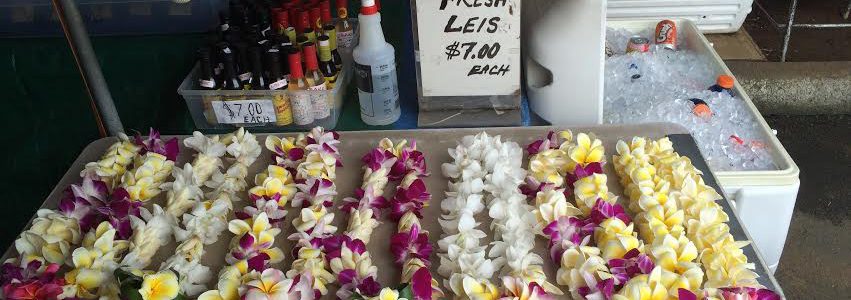 FRESH
LEIS
$7.00
EACH
$7.00
EACH